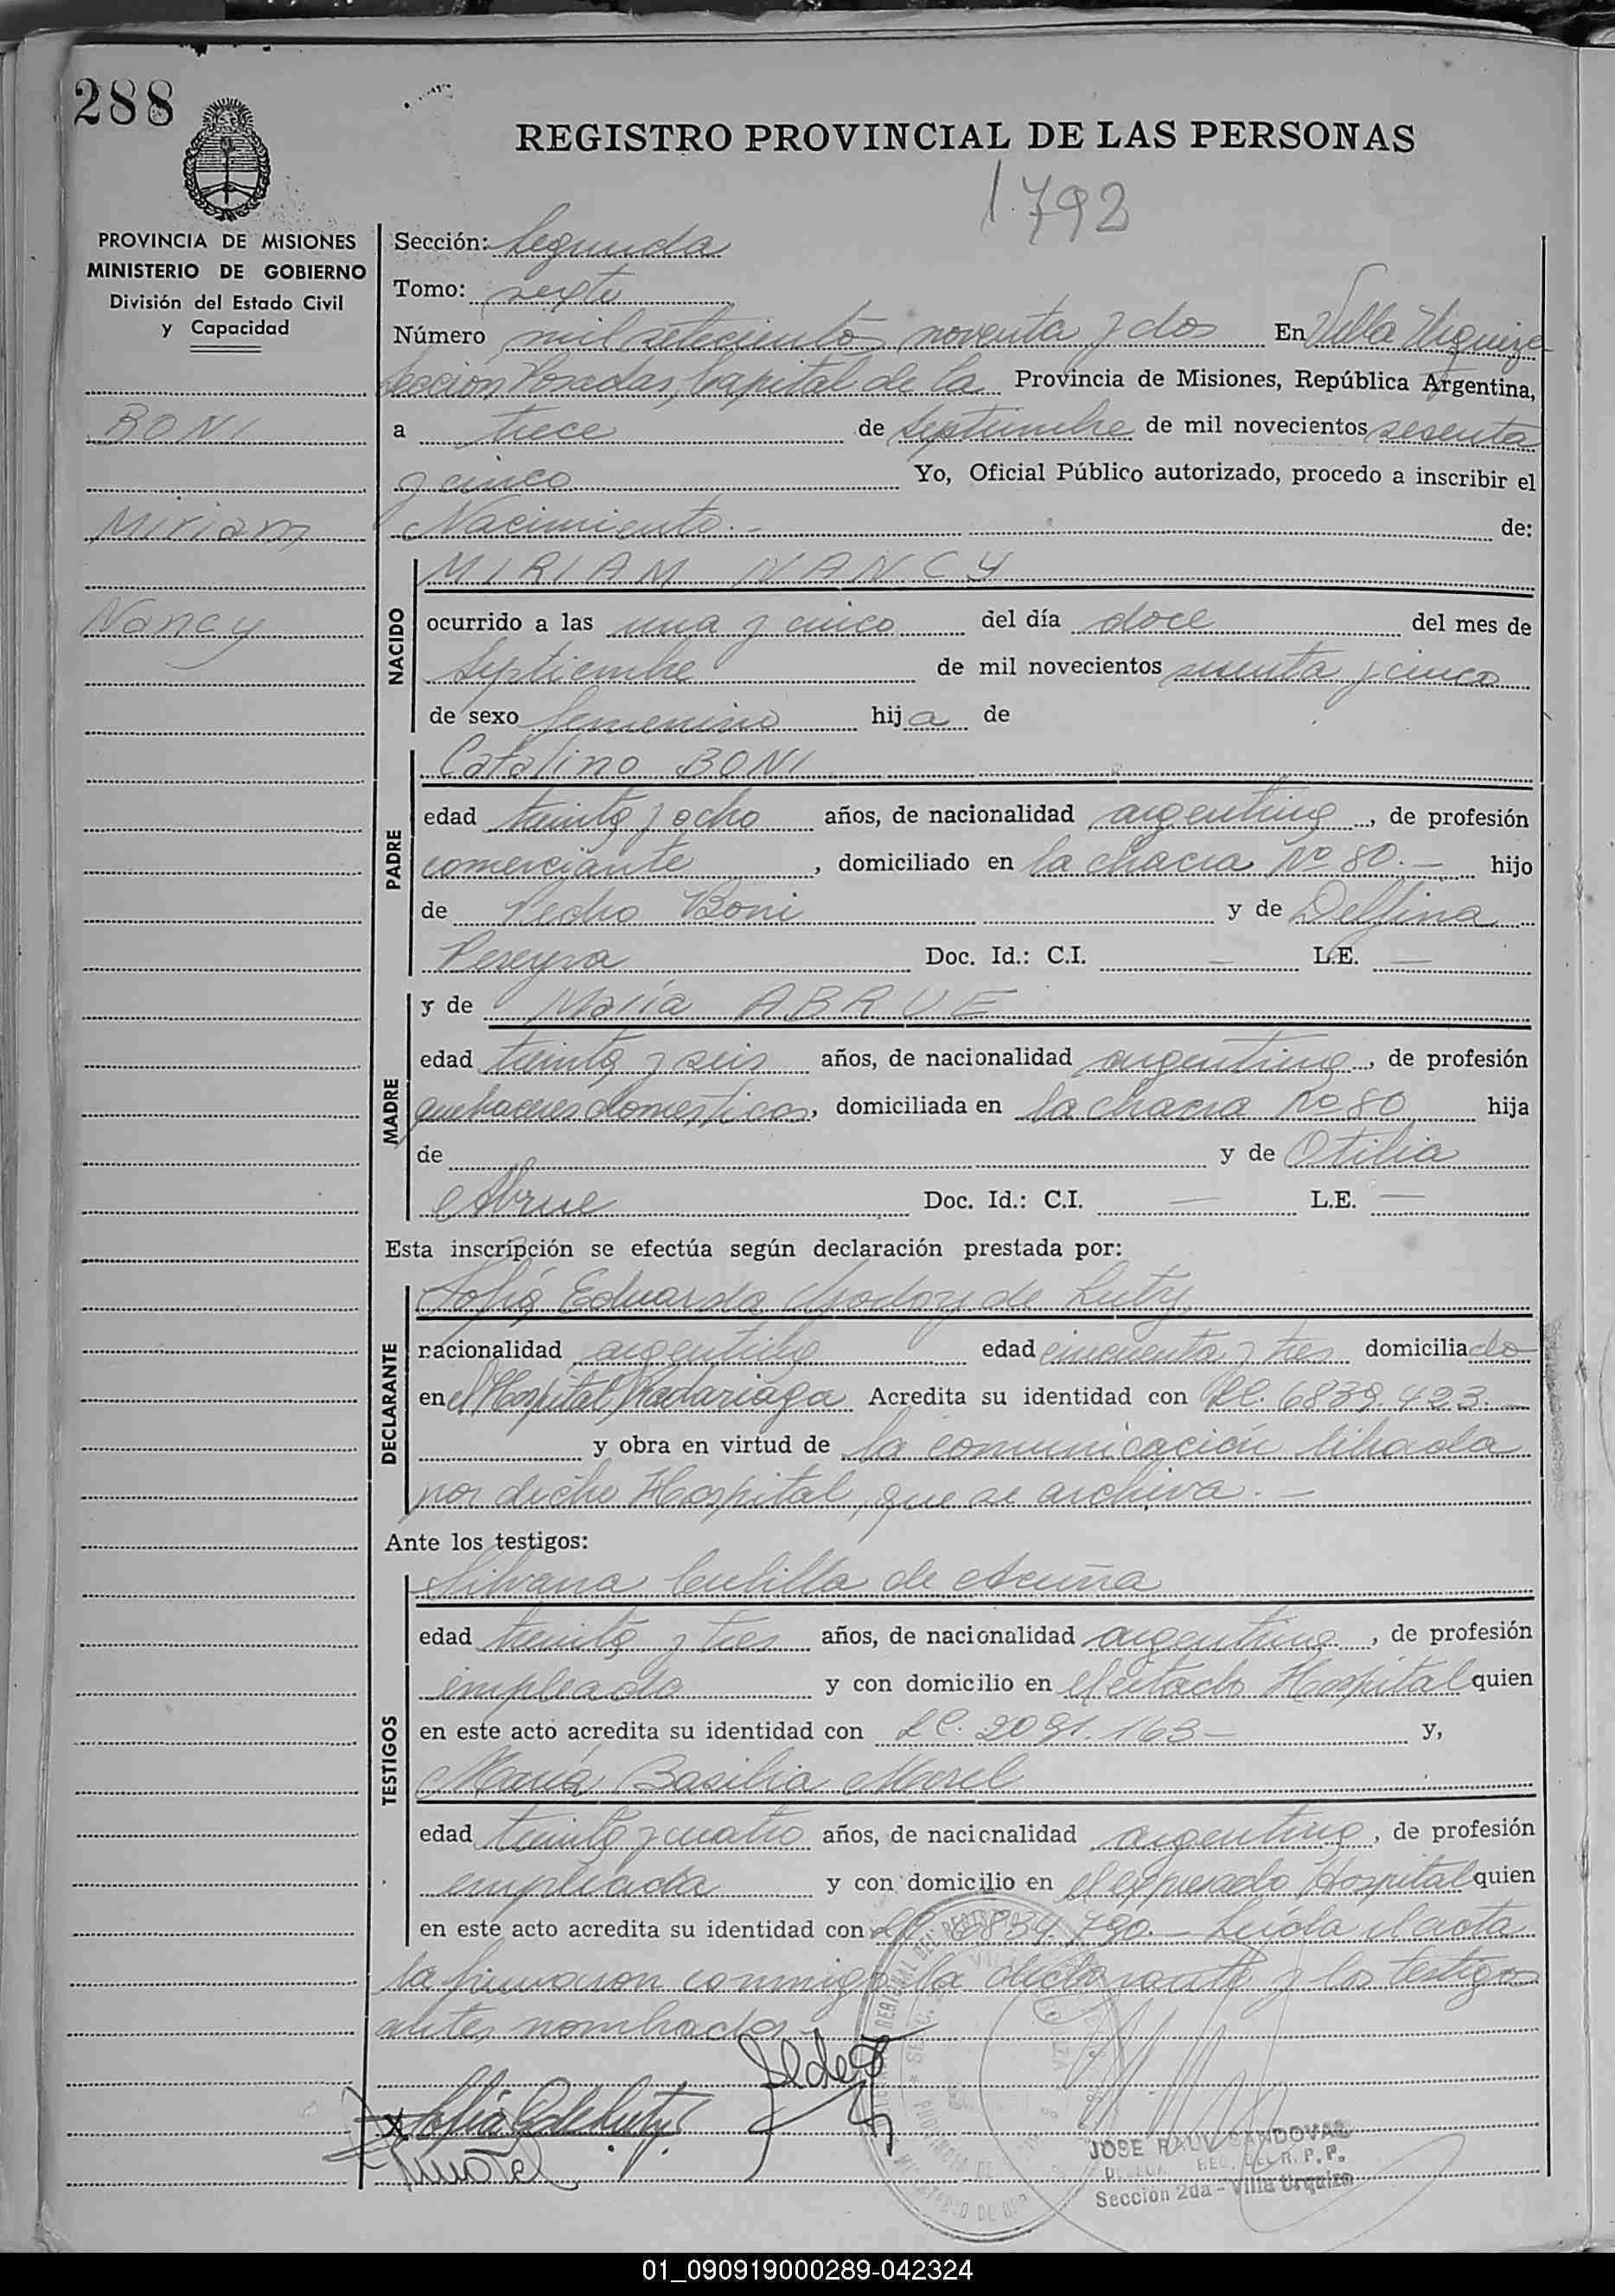 288
REGISTRO PROVINCIAL DE LAS PERSONAS
1.792
PROVINCIA DE MISIONES
MINISTERIO DE GOBIERNO
División del Estado Civil
y Capacidad
BONI
Miriam
Nancy
Sección: Segunda
Tomo: sexto
Número mil setecientos noventa y dos En Villa Urquiza
Sección Posadas, Capital de la Provincia de Misiones, República Argentina,
a trece de Septiembre de mil novecientos sesenta
y cinco Yo, Oficial Público autorizado, procedo a inscribir el
Nacimiento.- de:
NACIDO
MIRIAM NANCY
ocurrido a las una y cinco del día doce del mes de
Septiembre de mil novecientos sesenta y cinco
de sexo femenino hija de
PADRE
Catalino BONI
edad treinta y ocho años, de nacionalidad argentina, de profesión
comerciante, domiciliado en la chacra Nº 80.- hijo
de Pedro Boni y de Delfina
Pereyra Doc. Id.: C.I. — L.E. —
MADRE
y de María ABRUE
edad treinta y seis años, de nacionalidad argentina, de profesión
quehaceres domesticos, domiciliada en la chacra No 80 hija
de y de Otilia
Abrue Doc. Id.: C.I. — L.E. —
Esta inscripción se efectúa según declaración prestada por:
DECLARANTE
Sofía Eduarda Godoy de Luty
racionalidad argentina edad cincuenta y tres domiciliado
en el Hospital Madariaga Acredita su identidad con LC. 6839.423.-
y obra en virtud de la comunicación librada
por dicho Hospital, que se archiva.-
Ante los testigos:
TESTIGOS
Silvana de Acuña
edad treinta y tres años, de nacionalidad argentina, de profesión
empleada y con domicilio en el citado Hospital quien
en este acto acredita su identidad con LC. 2091.163- y,
María Basilia Morel
edad treinta y cuatro años, de nacicnalidad argentina, de profesión
empleada y con domicilio en el expresado Hospital quien
en este acto acredita su identidad con LC. 6839.790.- Leída el acta
la firmaron conmigo la declarante y los testigos
antes nombrados
Sofía G de Luty
JOSE RAUL SANDOVAL
R. P. P.
Sección 2da - Villa Urquiza
01_090919000289-042324